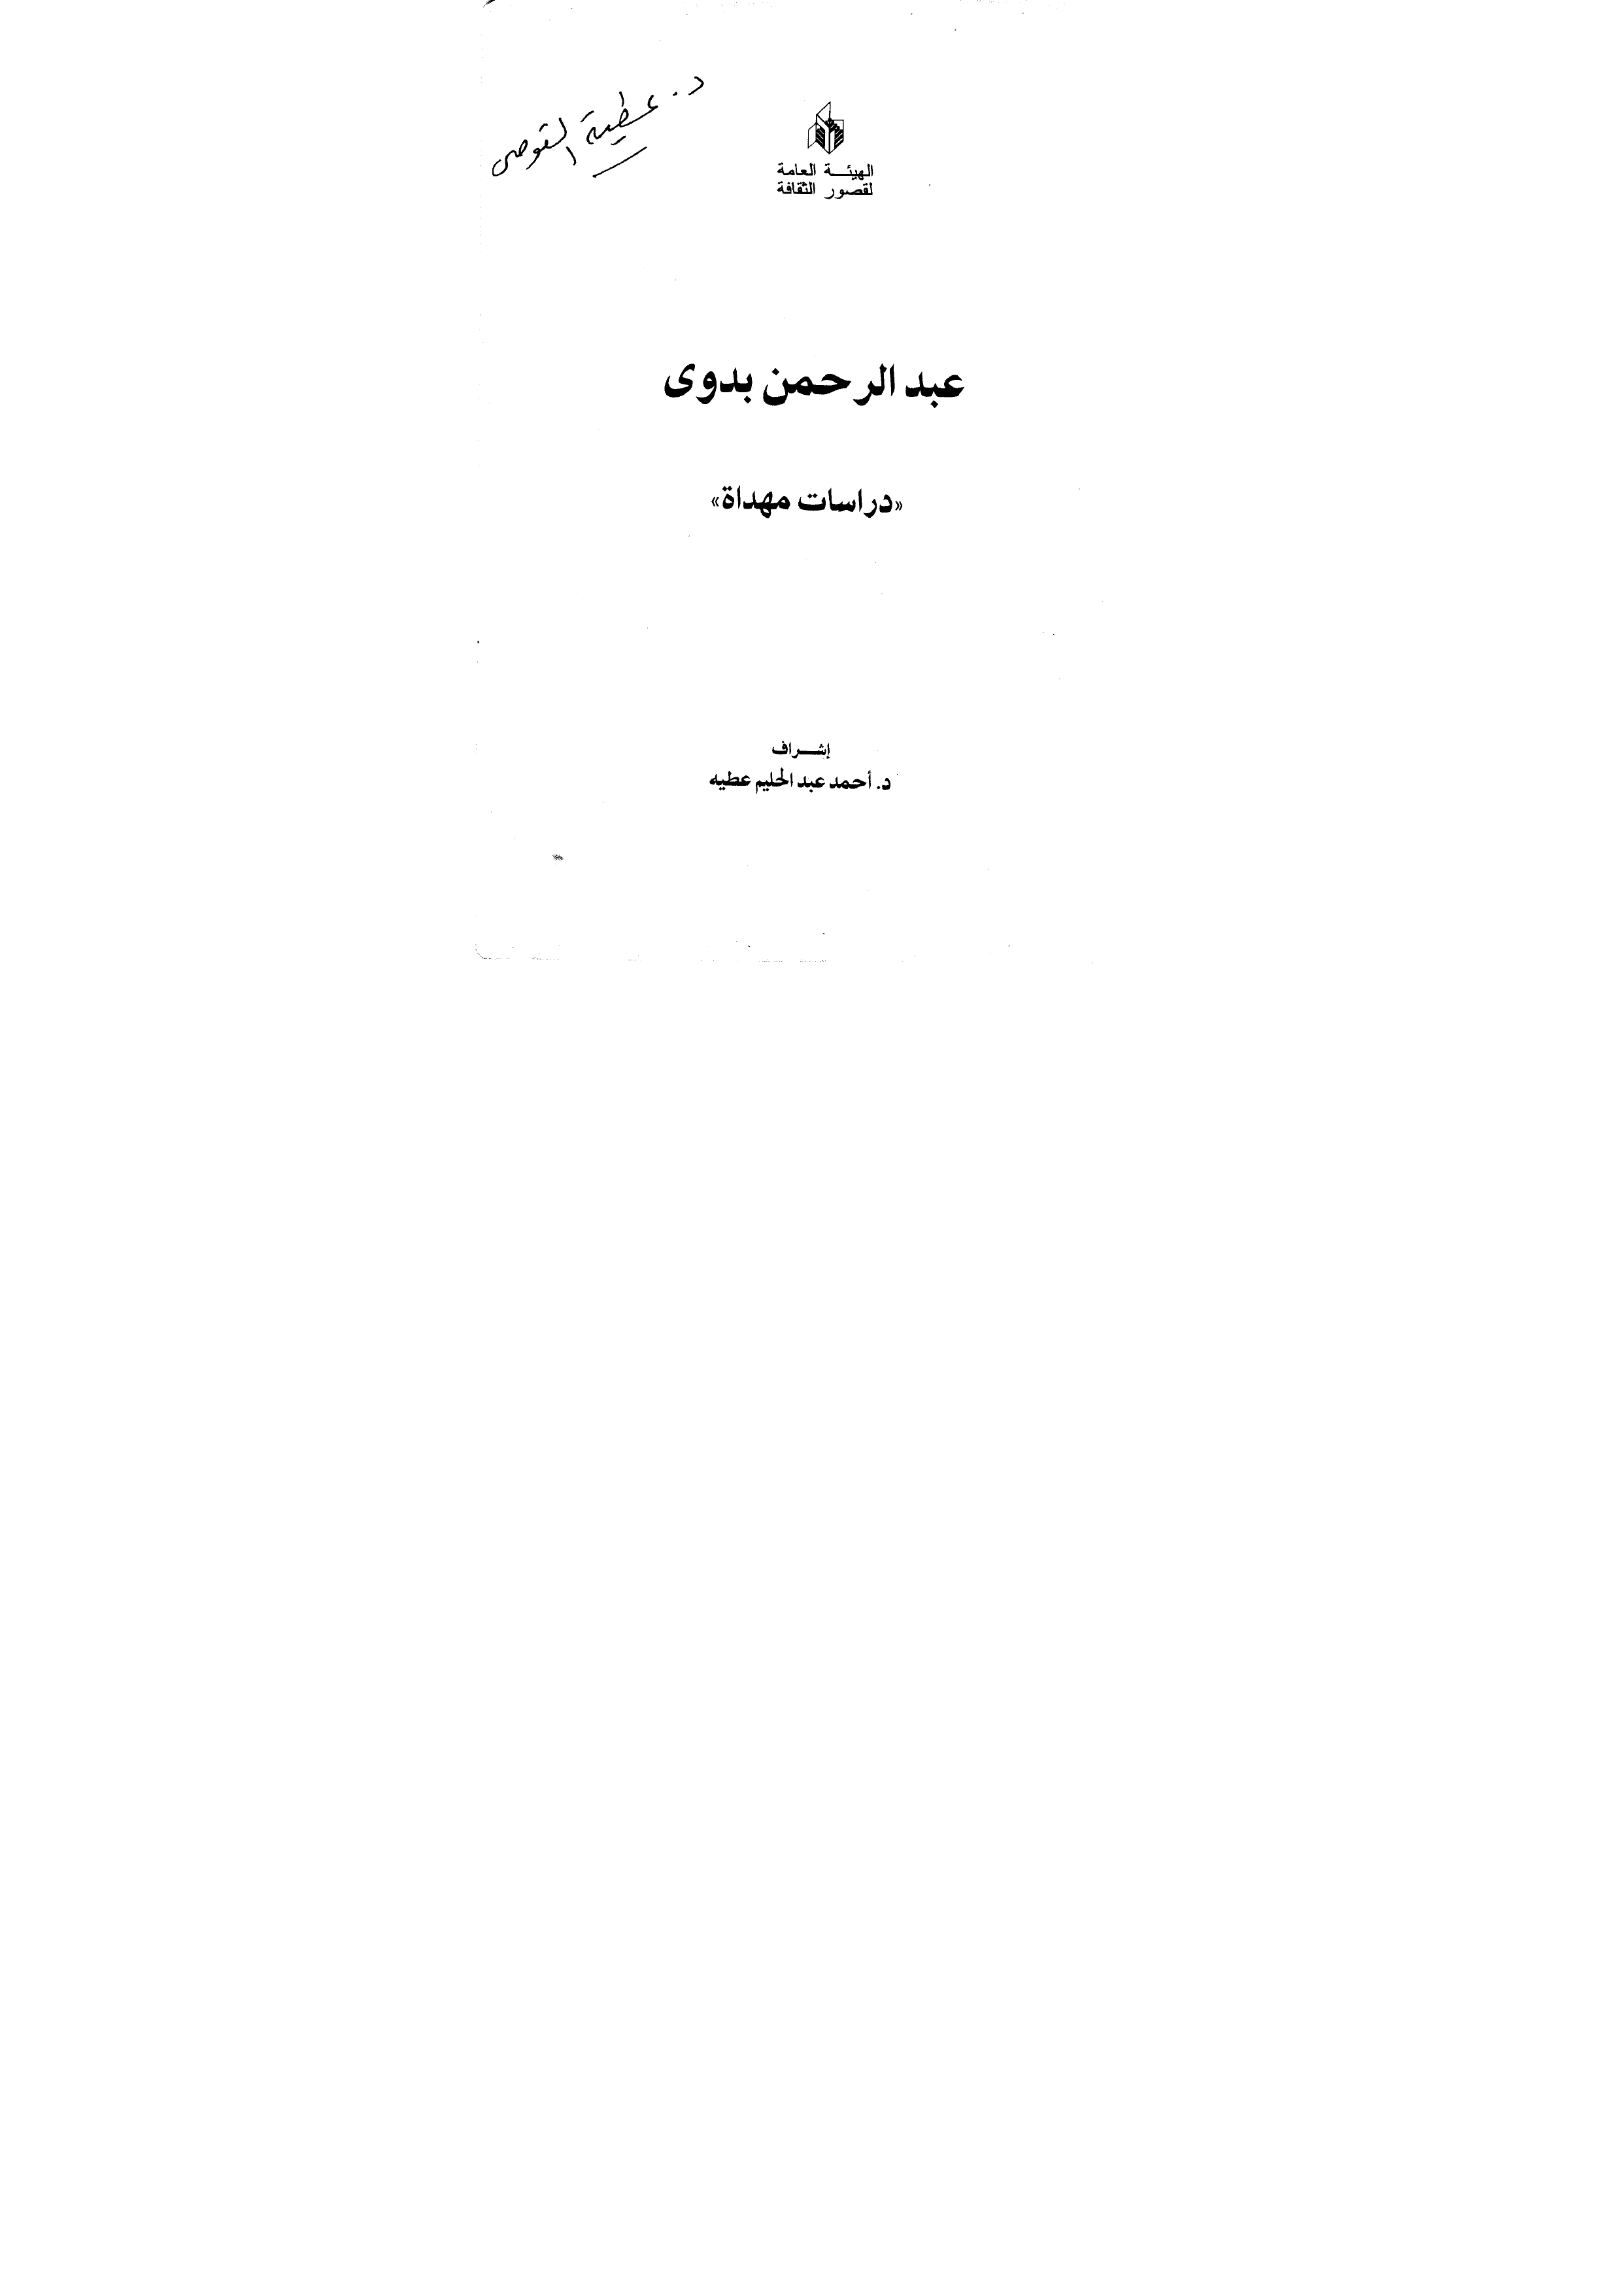 د. عطية القوصى
الهيئة العامة
لقصور الثقافة
عبد الرحمن بدوى
«دراسات مهداة»
إشراف
د. أحمد عبد الحليم عطيه